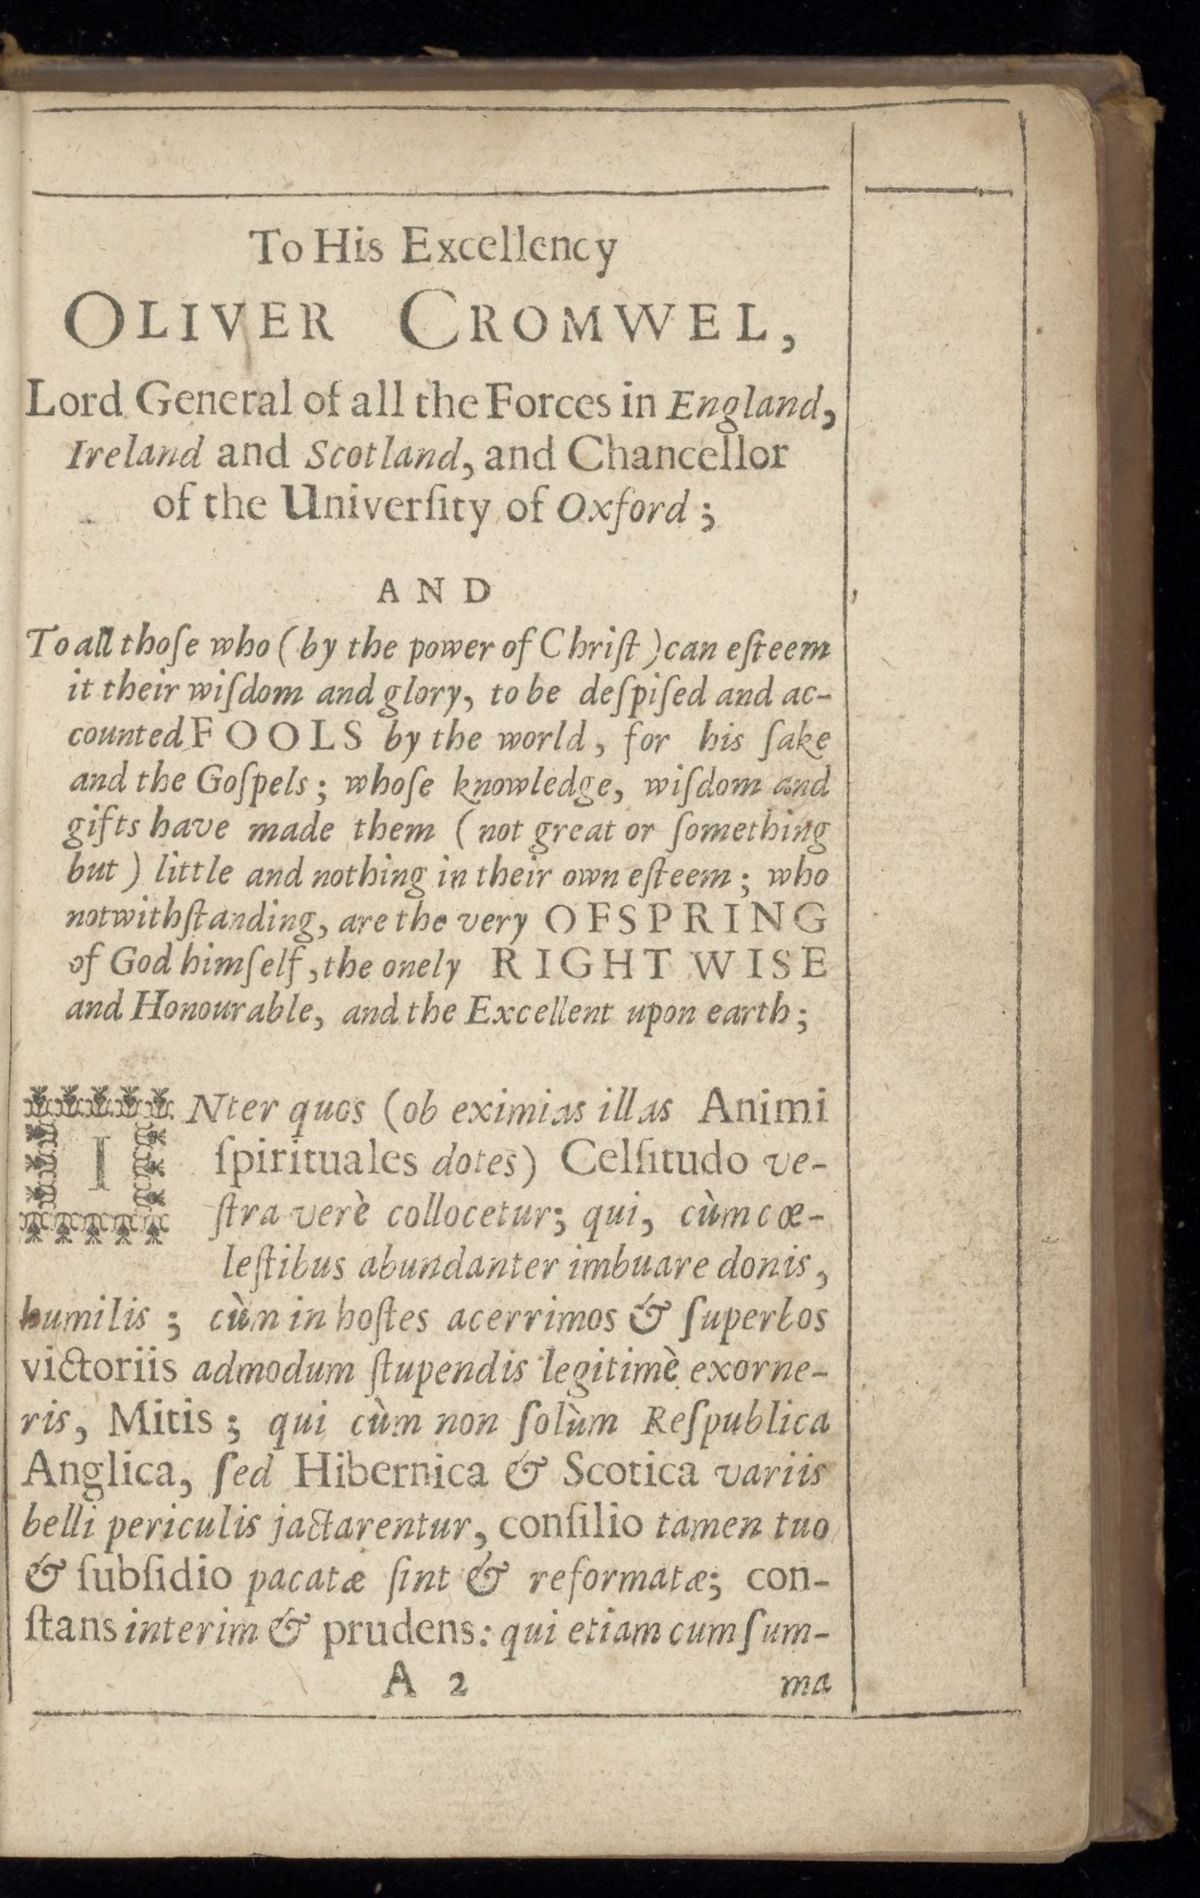 To His Excellency
OLIVER CROMWEL,
Lord General of all the Forces in England,
Ireland and Scotland, and Chancellor
of the Univerſity of Oxford;
AND
To all thoſe who (by the power of Chriſt) can eſteem
it their wiſdom and glory, to be deſpiſed and ac-
counted FOOLS by the world, for his ſake
and the Goſpels; whoſe knowledge, wiſdom and
gifts have made them (not great or ſomething
but) little and nothing in their own eſteem; who
notwithſtanding, are the very OFSPRING
of God himſelf, the onely RIGHT WISE
and Honourable, and the Excellent upon earth;
INter quos (ob eximias illas Animi
ſpirituales dotes) Celſitudo ve-
ſtra verè collocetur; qui, cùm cœ-
leſtibus abundanter imbuare donis,
humilis; cùm in hoſtes acerrimos & ſuperbos
victoriis admodum ſtupendis legitimè exorne-
ris, Mitis; qui cùm non ſolùm Reſpublica
Anglica, ſed Hibernica & Scotica variis
belli periculis jactarentur, conſilio tamen tuo
& ſubſidio pacatæ ſint & reformatæ; con-
ſtans interim & prudens: qui etiam cum ſum-
A 2 ma